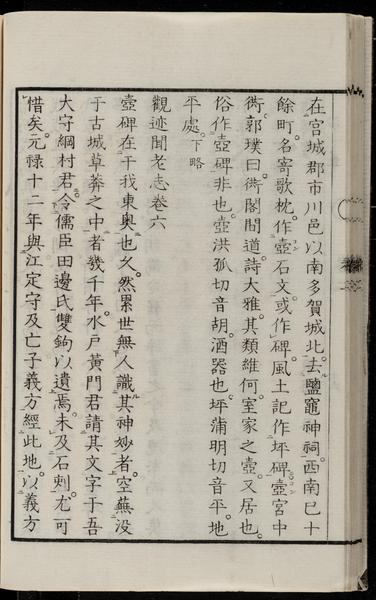 在宮城郡市川邑以南多賀城北。去鹽竈神祠。西南巳十
餘町。名寄歌枕。作壺石文。或作碑。風土記作坪碑。壺宮中
衖。郭璞曰。衖閤間道。詩大雅其類維何。室家之壺。又居也。
俗作壺碑非也。壺洪孤切音胡。酒器也。坪蒲明切音平。地
平處。下略
觀迹聞老志卷六
壺碑在于我東奧也久。然累世無人識其神妙者。空蕪没
于古城草莽之中者幾千年。水戶黃門君請其文字于吾
大守綱村君。令儒臣田邊氏雙鉤以遺焉。未及石刺。尤可
惜矣。元禄十二年與江定守及亡子義方經此地。以義方